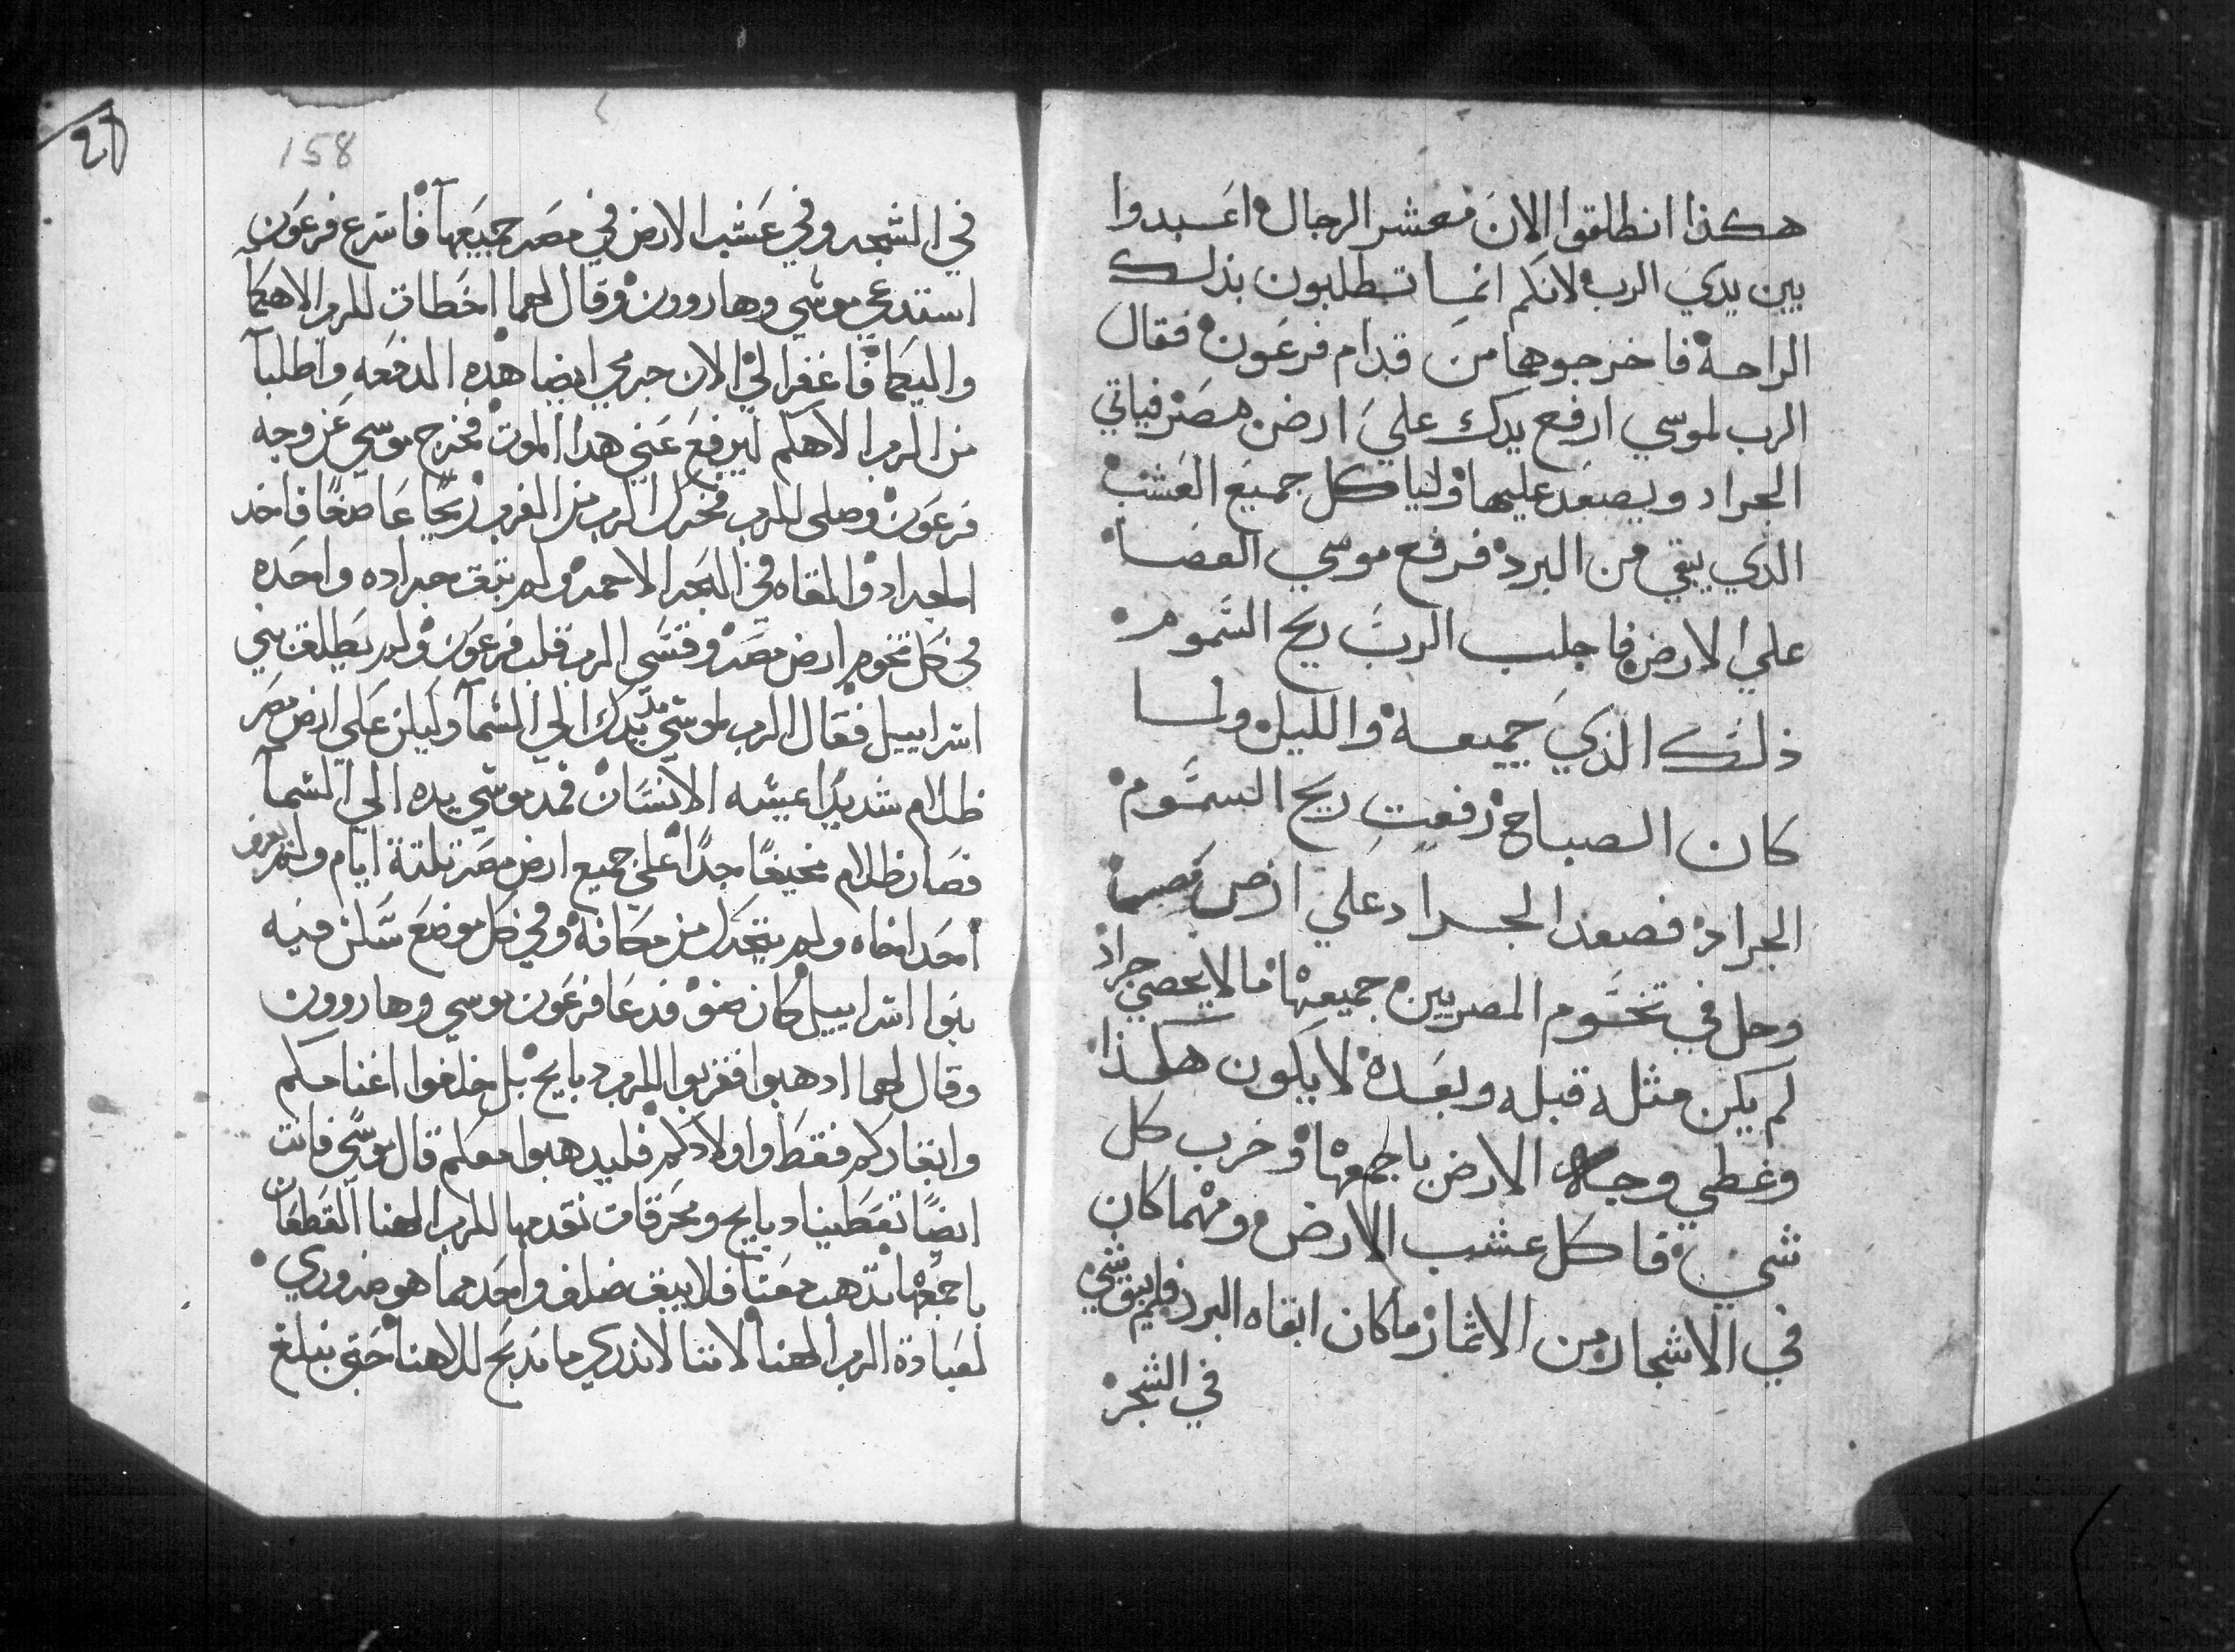 هكذا انطلقوا الان معشر الرجال اعبدوا
بين يدي الرب لانكم انما تطلبون بذلك
الراحة فاخرجوهما من قدام فرعون فقال
الرب لموسي ارفع يدك علي ارض مصر فياتي
الجراد ويصعد عليها ولياكل جميع العشب
الذي بقي من البرد فرفع موسي العصا
علي الارض فاجلب الرب ريح السموم
ذلك الذي جميعه والليل ولما
كان الصباح رفعت ريح السموم
الجراد فصعد الجراد علي ارض مصر
وحل في تخوم المصريين جميعها مالا يحصي جراد
لم يكن مثله قبله وبعده لا يكون هكذا
وغطي وجه الارض باجمعها وخرب كل
شي فاكل عشب الارض ومهما كان
في الاشجار من الاثمار ماكان ابقاه البرد فلم يبق شي
في الشجر
158
في الشجر وفي عشب الارض في مصر جميعها فاسرع فرعون
استدعي موسي وهاروون وقال لهما اخطات للرب الاهكما
واليكما فاغفرا لي الان جرمي ايضا هذه الدفعه واطلبا
من الرب الاهكم ليرفع عني هدا الموت فخرج موسي عن وجه
فرعون وصلي للرب فحرك الرب من الغرب ريحًا عاصفًا فاخد
الجراد والقاه في البحر الاحمر ولم تبق جراده واحده
في كل تخوم ارض مصر وقسي الرب قلب فرعون ولم يطلق بني
اسراييل فقال الرب لموسي مد يدك الي السما وليكن علي ارض مصر
ظلام شديدًا عيشه الانسان فمد موسي يده الي السما
فصار ظلام مخيفًا جدًا علي جميع ارض مصر تلتة ايام ولم يعرف
احد اخاه ولم يتحرك من مكانه وفي كل موضع سكن فيه
بنوا اسراييل كان ضو فدعا فرعون موسي وهاروون
وقال لهما ادهبوا فقربوا للرب دبايح بل خلفوا اغنامكم
وابقاركم فقط واولادكم فليدهبوا معكم قال موسي فانت
ايضًا تعطينا دبايح ومحرقات نقدمها للرب الهنا القطعان
باجمعها تدهب معنا فلا يبق ضلف واحد مما هو ضروري
لعبادة الرب الهنا لاننا لا ندري ما ندبح للاهنا حتي نبلغ